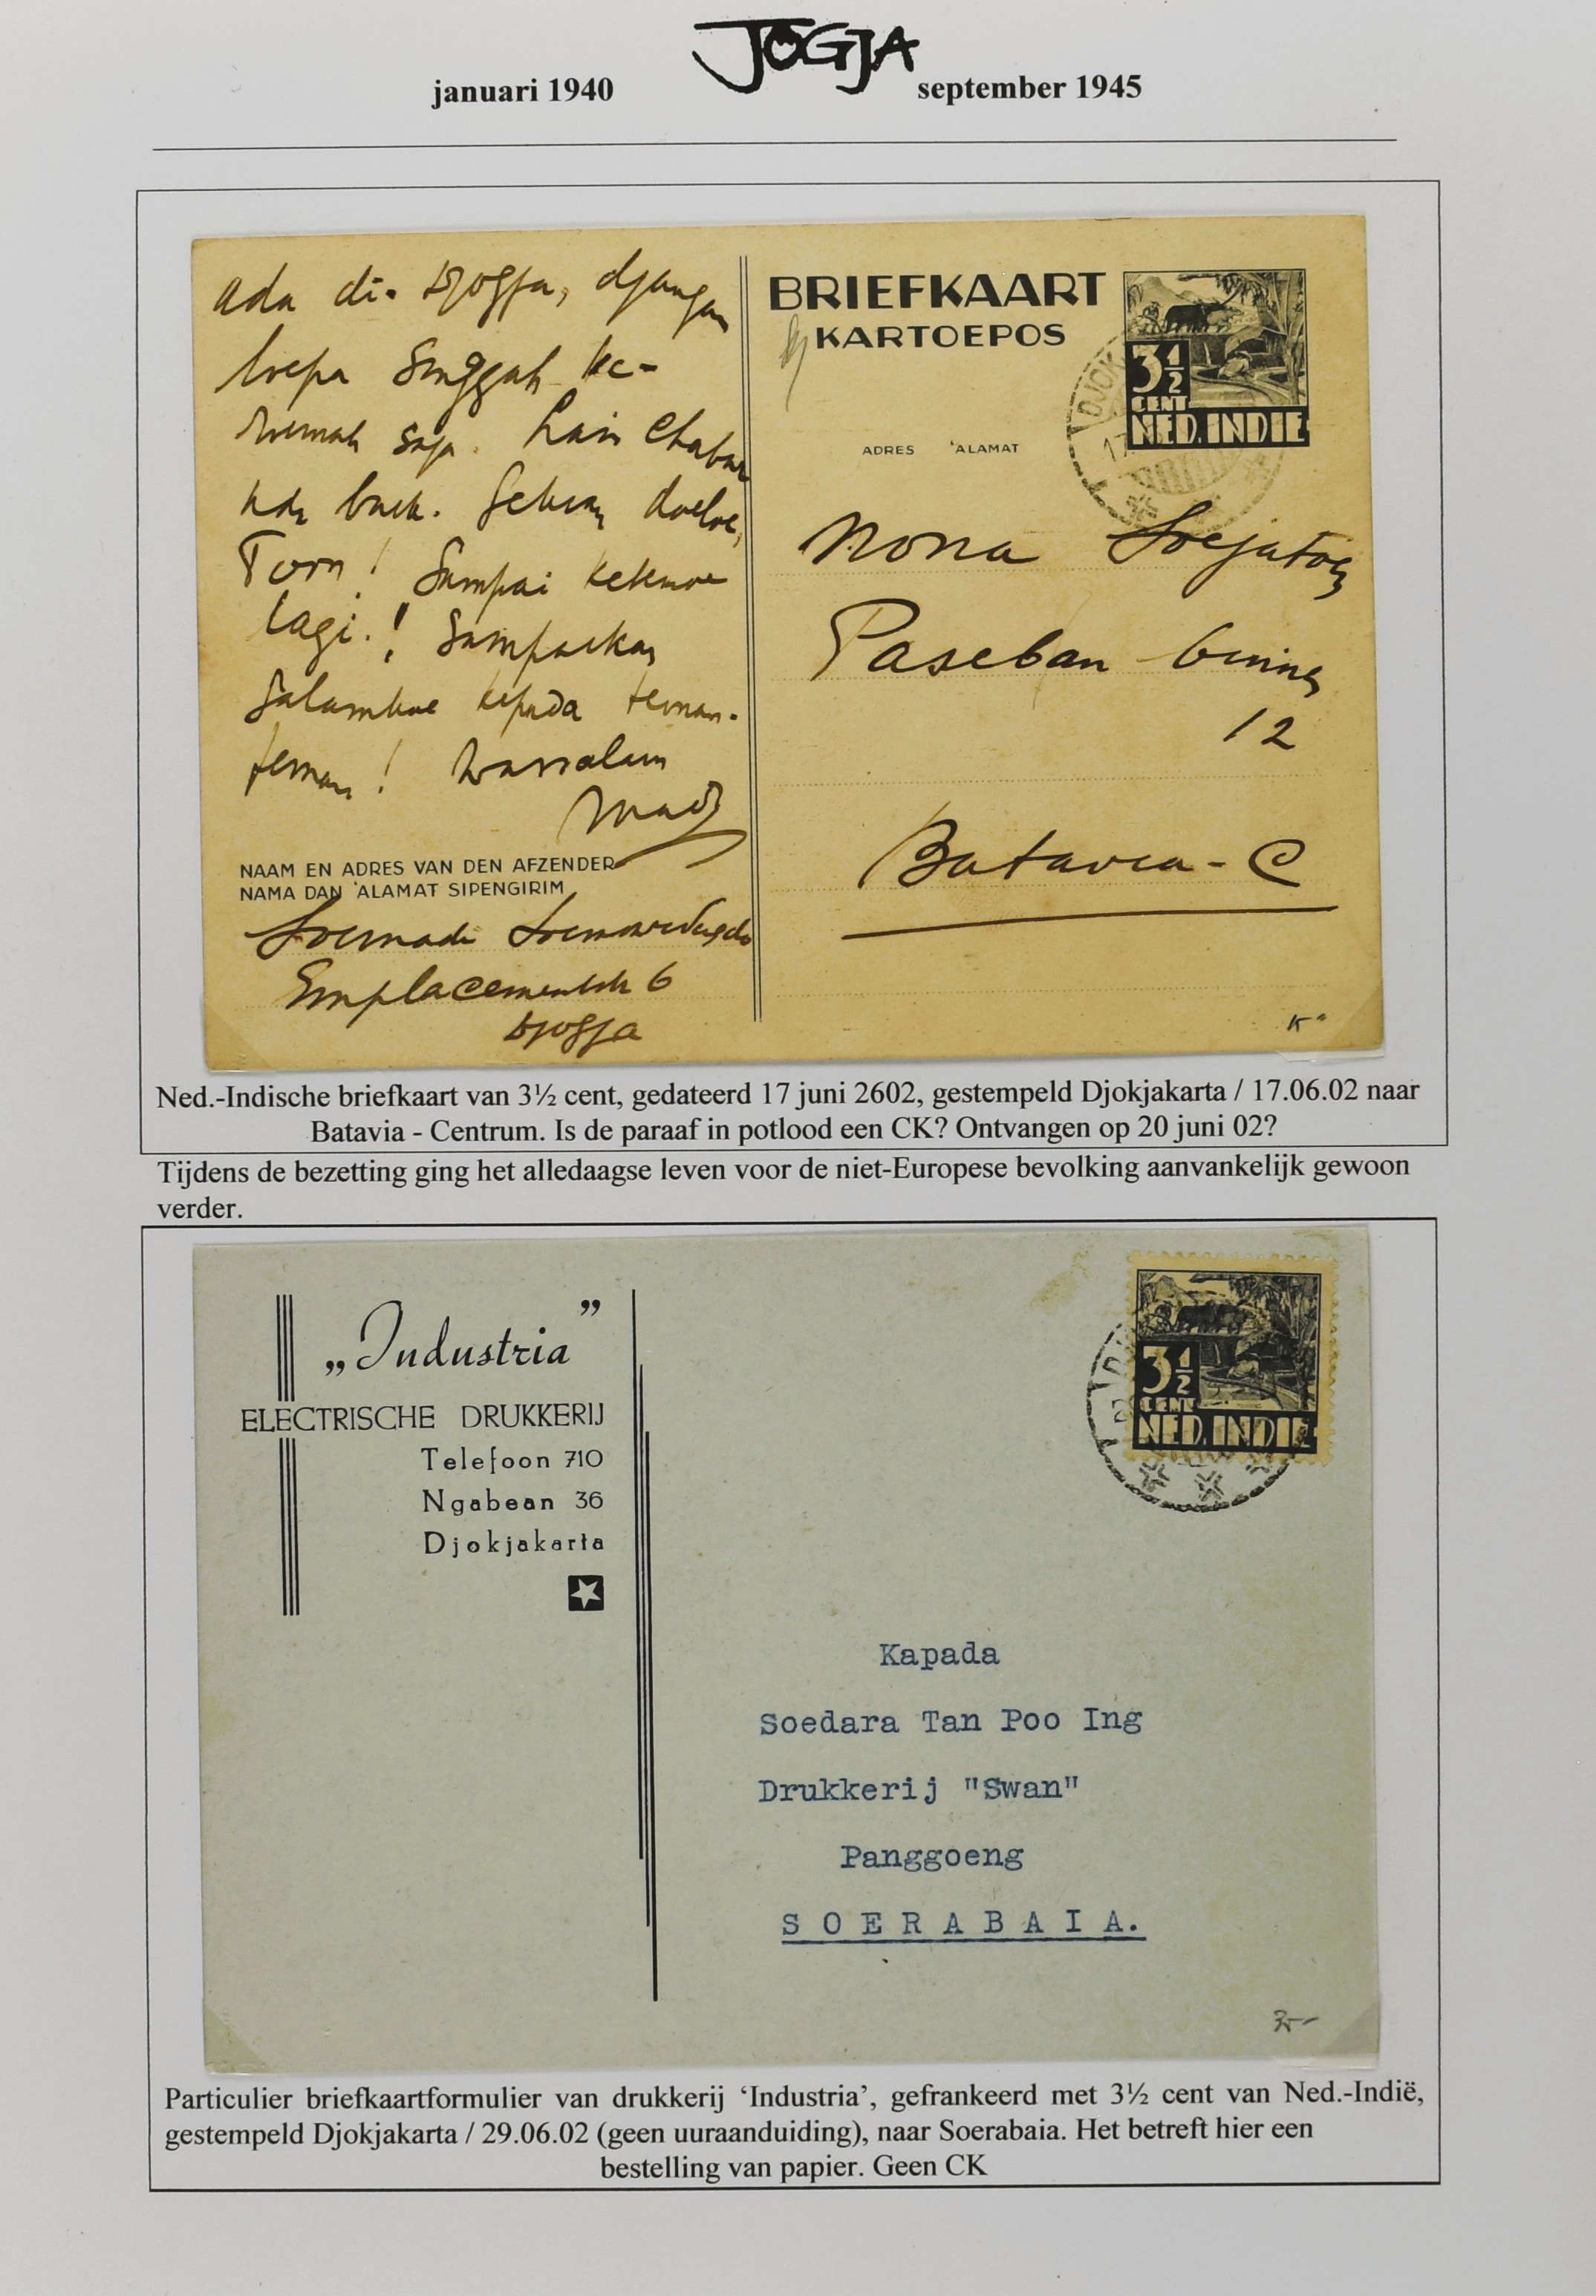 JOGJA
januari 1940 september 1945
ada di- Djogja, djangan
loepa singgah ke-
roemah saja. Lain chabar
tida baik. Sekian doeloe,
Toen! Sampai ketemoe
lagi.! Sampaikan
salamkoe kepada teman-
teman! Wassalam
NAAM EN ADRES VAN DEN AFZENDER
NAMA DAN 'ALAMAT SIPENGIRIM
Soemadi
Emplacementstr 6
Djogja
BRIEFKAART
KARTOEPOS
3½
CENT
NED. INDIE
DJOK
17
ADRES 'ALAMAT
Nona Soejatoen
Paseban
12
Batavia - C
Ned.-Indische briefkaart van 3½ cent, gedateerd 17 juni 2602, gestempeld Djokjakarta / 17.06.02 naar
Batavia - Centrum. Is de paraaf in potlood een CK? Ontvangen op 20 juni 02?
Tijdens de bezetting ging het alledaagse leven voor de niet-Europese bevolking aanvankelijk gewoon
verder.
„Industria”
ELECTRISCHE DRUKKERIJ
Telefoon 710
Ngabean 36
Djokjakarta
3½
CENT
NED. INDIE
Kapada
Soedara Tan Poo Ing
Drukkerij "Swan"
Panggoeng
SOERABAIA.
Particulier briefkaartformulier van drukkerij ‘Industria’, gefrankeerd met 3½ cent van Ned.-Indië,
gestempeld Djokjakarta / 29.06.02 (geen uuraanduiding), naar Soerabaia. Het betreft hier een
bestelling van papier. Geen CK